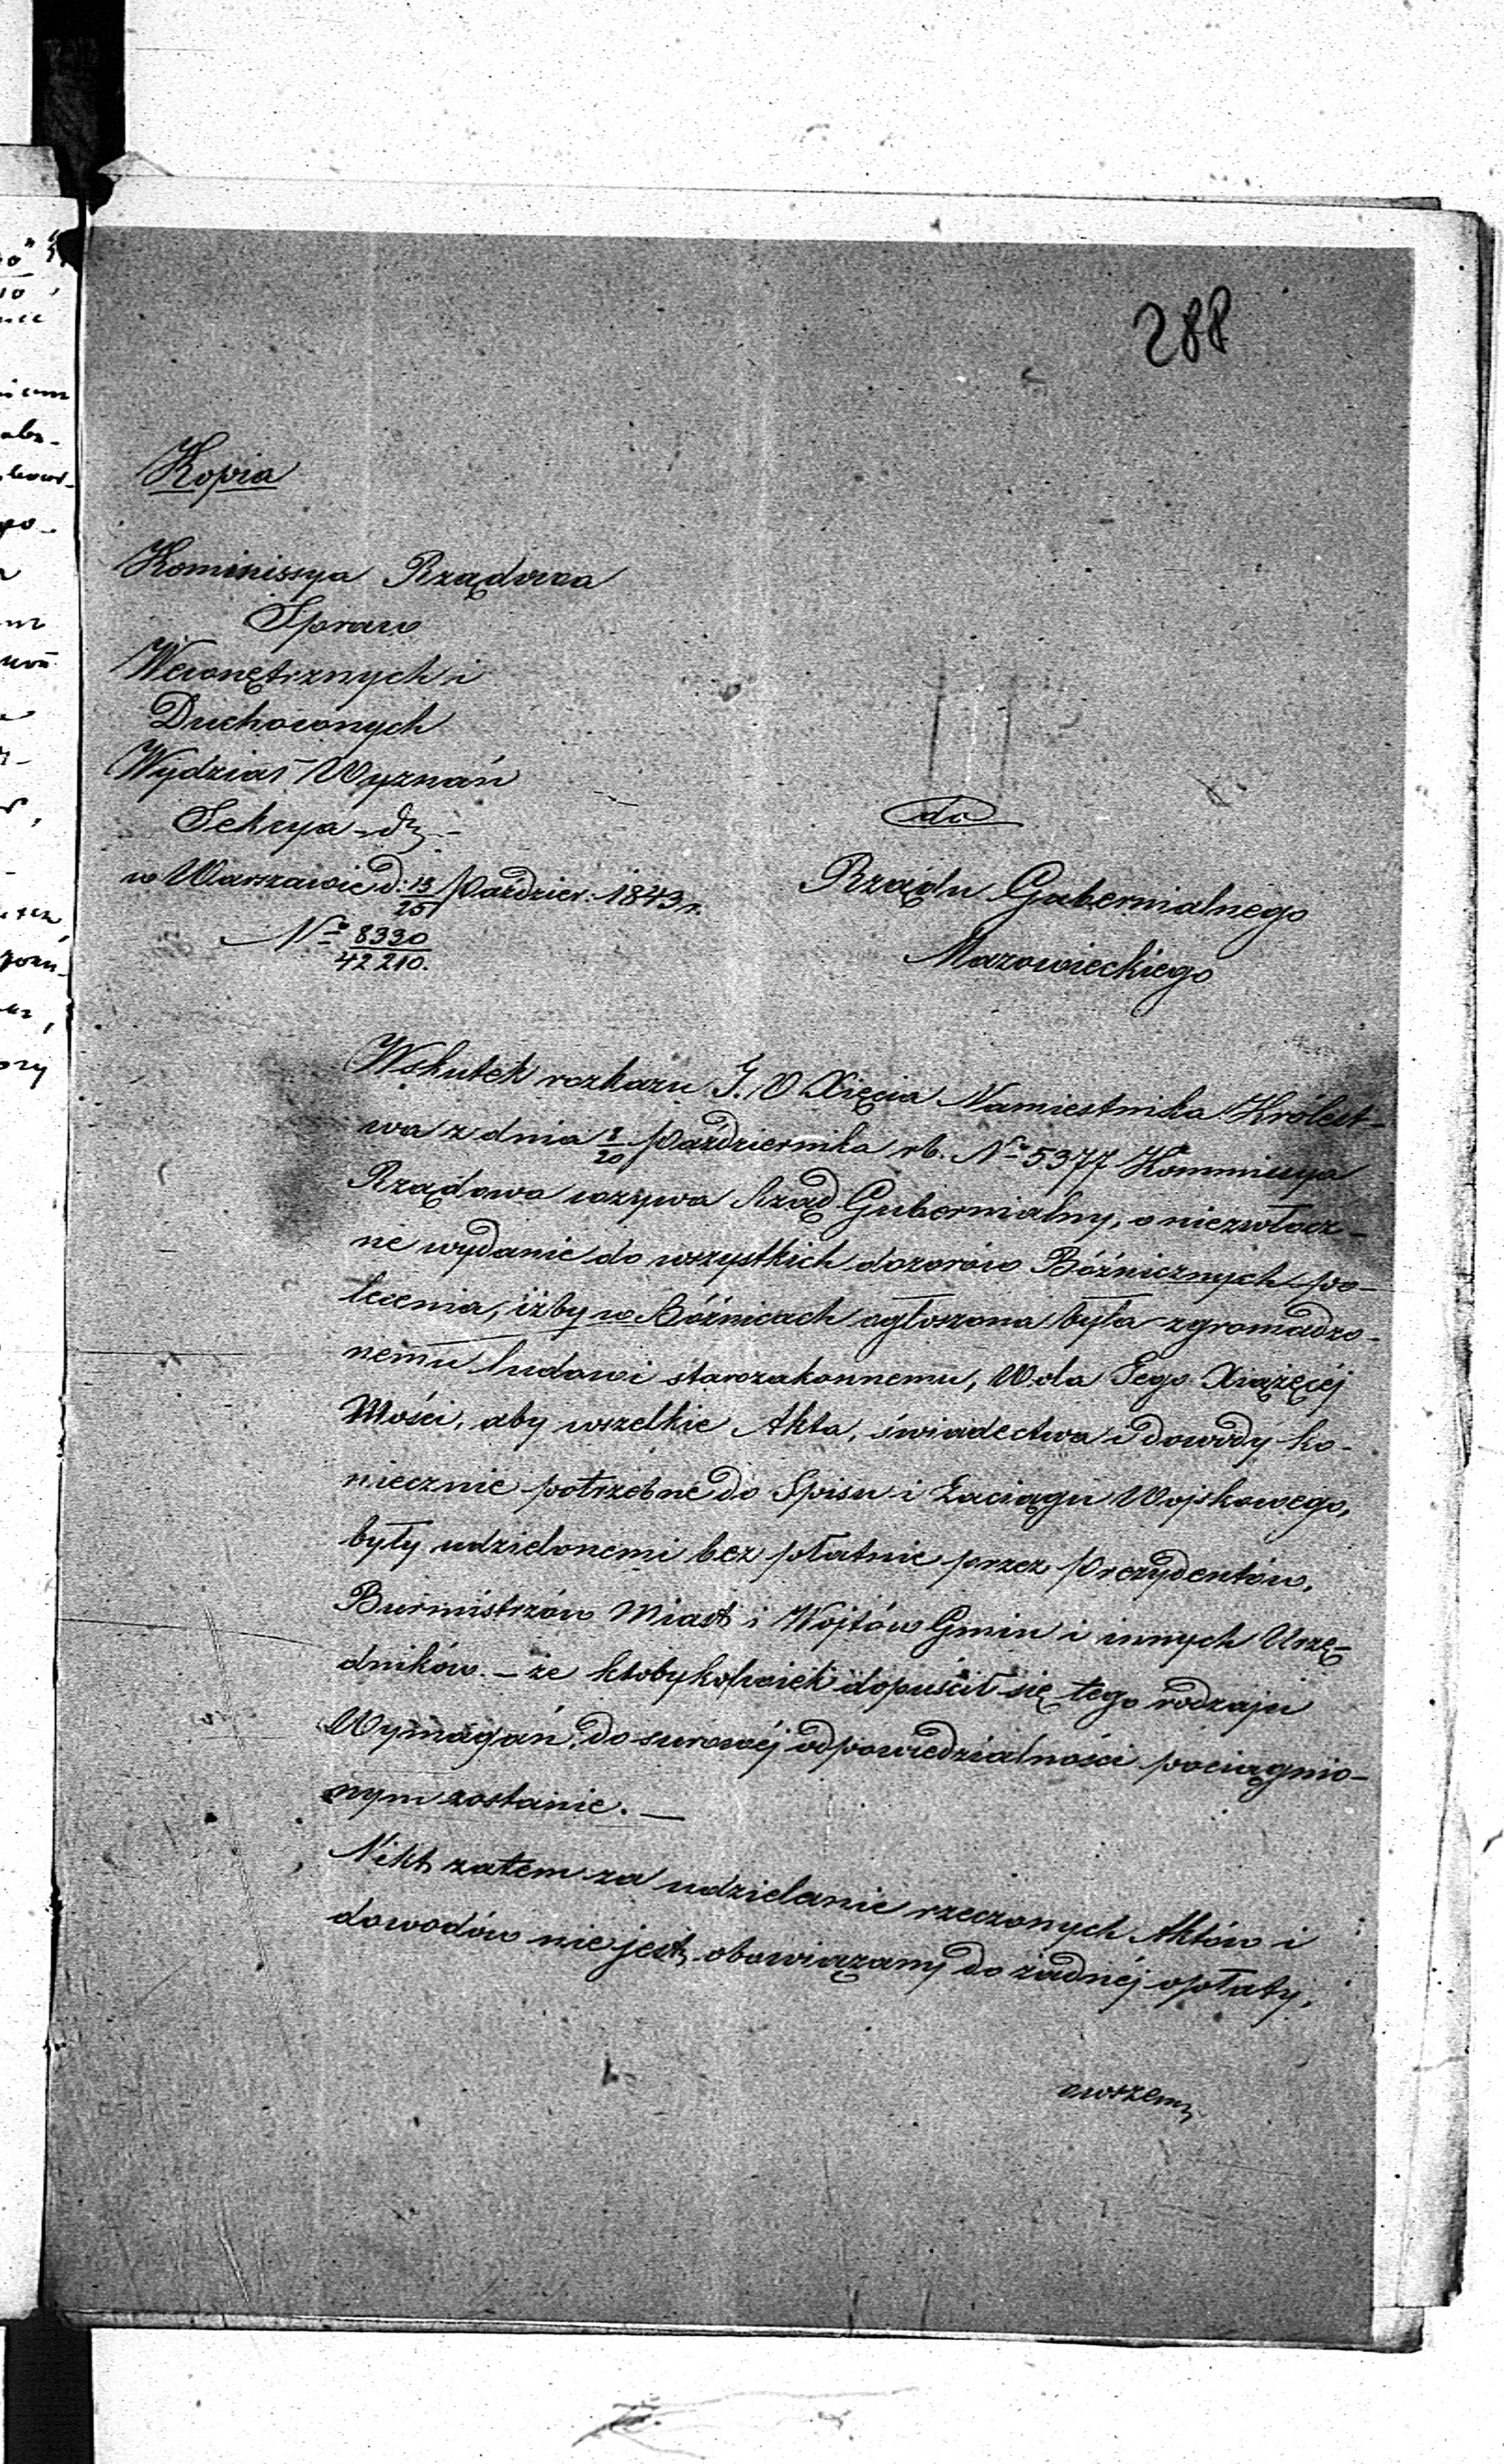 288
Kopia
Kommissya Rządowa
Spraw
Wewnętrznych i
Duchownych
Wydział Wyznań
Sekcya
w Warszawie d: 13/25 Paździer. 1843 r.
No 8330/42210.
do
Rządu Gubernialnego
Mazowieckiego
Wskutek rozkazu J. O Xięcia Namiestnika Królest-
wa z dnia 8/20 Października rb. No 5377 Kommissya
Rządowa wzywa Rząd Gubernialny, o niezwłocz-
ne wydanie do wszystkich dozorów Bóżnicznych po-
lecenia, iżby w Bóżnicach ogłoszona była zgromadzo-
nemu ludowi starozakonnemu, Wola Jego Xiążęcéj
Mości, aby wszelkie Akta, świadectwa i dowody ko-
niecznie potrzebne do Spisu i Zaciągu Wojskowego,
były udzielonemi bez płatnie przez Prezydentów,
Burmistrzów Miast i Wojtów Gmin i innych Urzę-
dników. – że ktobykolwiek dopuścił się tego rodzaju
Wymagań, do surowéj odpowiedzialności pociągnio-
nym zostanie. —
Nikt zatem za udzielanie rzeczonych Aktów i
dowodów nie jest obowiązany do żadnéj opłaty,
owszem